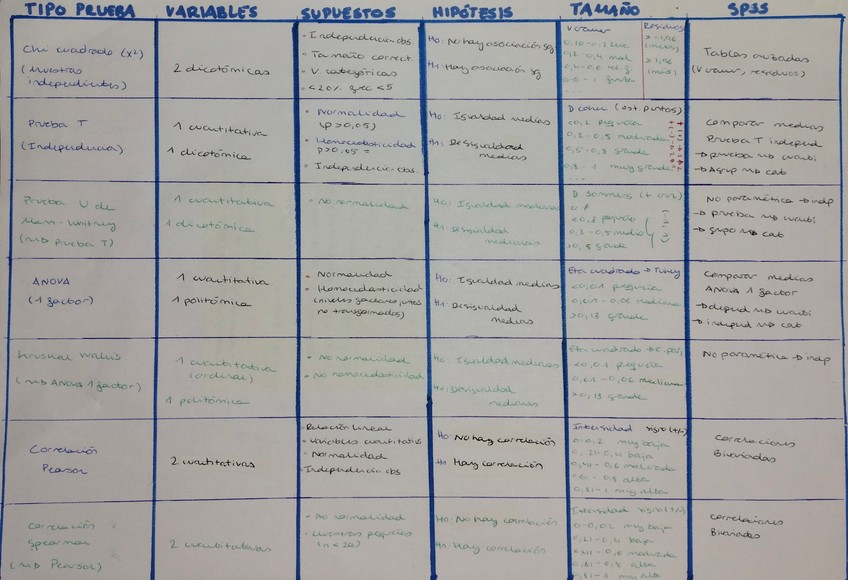 TIPO PRUEBA VARIABLES SUPUESTOS HIPÓTESIS TAMAÑO SPSS
Chi cuadrado (x²)
(muestras
independientes)
2 dicotómicas
- Independencia obs.
- Tamaño correct.
- V. categóricas
- <20% frec <5
Ho: No hay asociación sg
H1: Hay asociación sg
V cramer
Residuos
Tablas cruzadas
(V cramer, residuos)
Prueba T
(Independencia)
1 cuantitativa
1 dicotómica
• Normalidad
(p>0,05)
• Homocedasticidad
p>0,05 =
• Independencia obs.
Ho: Igualdad medias
H1: Desigualdad
medias
D cohen (est. puntos)
<0,2 pequeña
0,2-0,5 moderada
0,5-0,8 grande
0,8-1 muy grande
...
Comparar medias
Prueba T independ
→ prueba → cuanti
→ Agrup → cat
Prueba U de
Mann-Whitney
(→ Prueba T)
1 cuantitativa
1 dicotómica
• No normalidad
Ho: Igualdad medianas
H1: Desigualdad
medianas
D Sommers (+ cruz)
<0,3 pequeño
0,3-0,5 medio
>0,5 grande
No paramétrica → indp
→ prueba → cuanti
→ grupo → cat
ANOVA
(1 factor)
1 cuantitativa
1 politómica
• Normalidad
• Homocedasticidad
no transformados)
Ho: Igualdad medias
H1: Desigualdad
medias
Eta cuadrado → Tukey
<0,01 pequeña
0,01-0,06 mediana
>0,13 grande
Comparar medias
ANOVA 1 factor
→ depend → cuanti
→ independ → cat
Kruskal Wallis
(→ Anova 1 factor)
1 cuantitativa
(ordinal)
1 politómica
• No normalidad
• No homocedasticidad
Ho: Igualdad medianas
H1: Desigualdad
medianas
Eta cuadrado → C. par.
<0,01 pequeña
0,01-0,06 mediana
>0,13 grande
No paramétrica → indp
Correlación
Pearson
2 cuantitativas
- Relación lineal
- Variables cuantitativ
- Normalidad
- Independencia obs
Ho: No hay correlación
H1: Hay correlación
Intensidad signo (+/-)
0-0,2 muy baja
0,2-0,4 baja
0,4-0,6 moderada
0,6-0,8 alta
0,81-1 muy alta
Correlaciones
Bivariadas
Correlación
Spearman
(→ Pearson)
2 cuantitativas
• No normalidad
• Muestras pequeñas
(n<20)
Ho: No hay correlación
H1: Hay correlación
Intensidad signo (+/-)
0-0,02 muy baja
0,21-0,4 baja
0,41-0,6 moderada
0,61-0,8 alta
0,81-1 muy alta
Correlaciones
Bivariadas